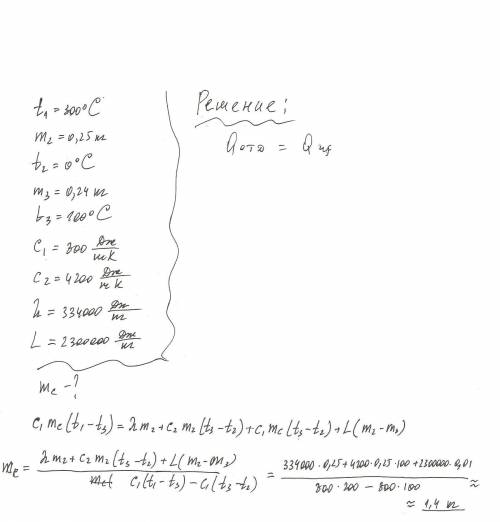 t₁ = 300°C
m₂ = 0,25 кг
t₂ = 0°C
m₃ = 0,24 кг
t₃ = 100°C
c₁ = 800 Дж/кг К
c₂ = 4200 Дж/кг К
λ = 334000 Дж/кг
L = 2300000 Дж/кг
mс - ?
Решение:
Qотд = Qпр
c₁ mс (t₁ - t₃) = λ m₂ + c₂ m₂ (t₃ - t₂) + c₁ mс (t₃ - t₂) + L (m₂ - m₃)
mс = λ m₂ + c₂ m₂ (t₃ - t₂) + L (m₂ - m₃) / c₁ (t₁ - t₃) - c₁ (t₃ - t₂) = 334000 · 0,25 + 4200 · 0,25 · 100 + 2300000 · 0,01 / 800 · 200 - 800 · 100 ≈
≈ 1,4 кг